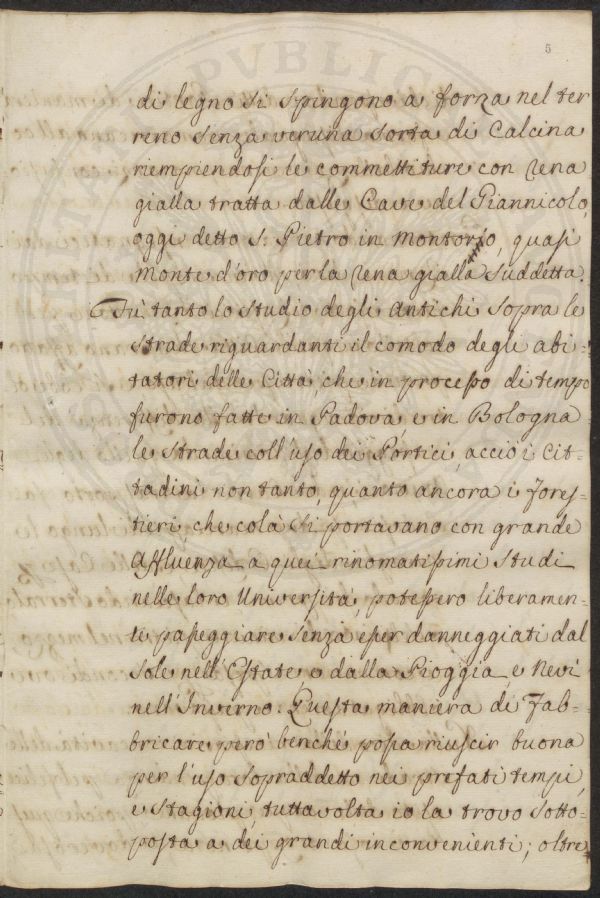 5
di legno si spingono a forza nel ter
reno senza veruna sorta di Calcina
riempiendosi le commettiture con rena
gialla tratta dalle Cave del Giannicolo,
oggi detto S. Pietro in Montorio, quasi
Monte d'oro per la rena gialla suddetta.
Fù tanto lo studio degli Antichi sopra le
strade riguardanti il comodo degli abi-
tatori delle Città, che in processo di tempo
furono fatte in Padova e in Bologna
le strade coll'uso dei Portici, acciò i Cit-
tadini non tanto, quanto ancora i fores-
tieri, che colà si portavano con grande
Affluenza a quei rinomatissimi studi
nelle loro Università, potessero liberamen-
te passeggiare senza esser danneggiati dal
sole nell'Estate, o dalla Pioggia, e Nevi
nell'Inverno. Questa maniera di fab-
bricare però benché possa riuscir buona
per l'uso sopraddetto nei prefati tempi,
e stagioni, tuttavolta io la trovo sotto-
posta a dei grandi inconvenienti; oltre